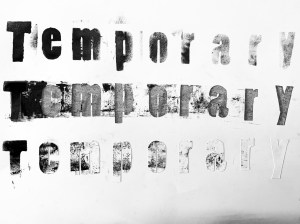 Temporary
Temporary
Temporary